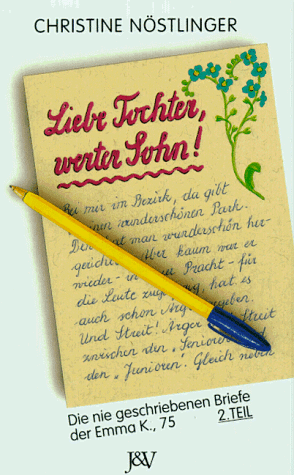 CHRISTINE NÖSTLINGER
Liebe Tochter,
werter Sohn!
Bei mir im Bezirk, da gibt
wunderschönen Park.
Den hat man wunderschön her-
gerichtet. Aber kaum war er
wieder - in Pracht - für
die Leute hat es
auch schon gegeben.
Und Streit! Ärger Streit
zwischen den „Senioren"
den „Junioren". Gleich neben
Die nie geschriebenen Briefe
der Emma K., 75 2. TEIL
J&V